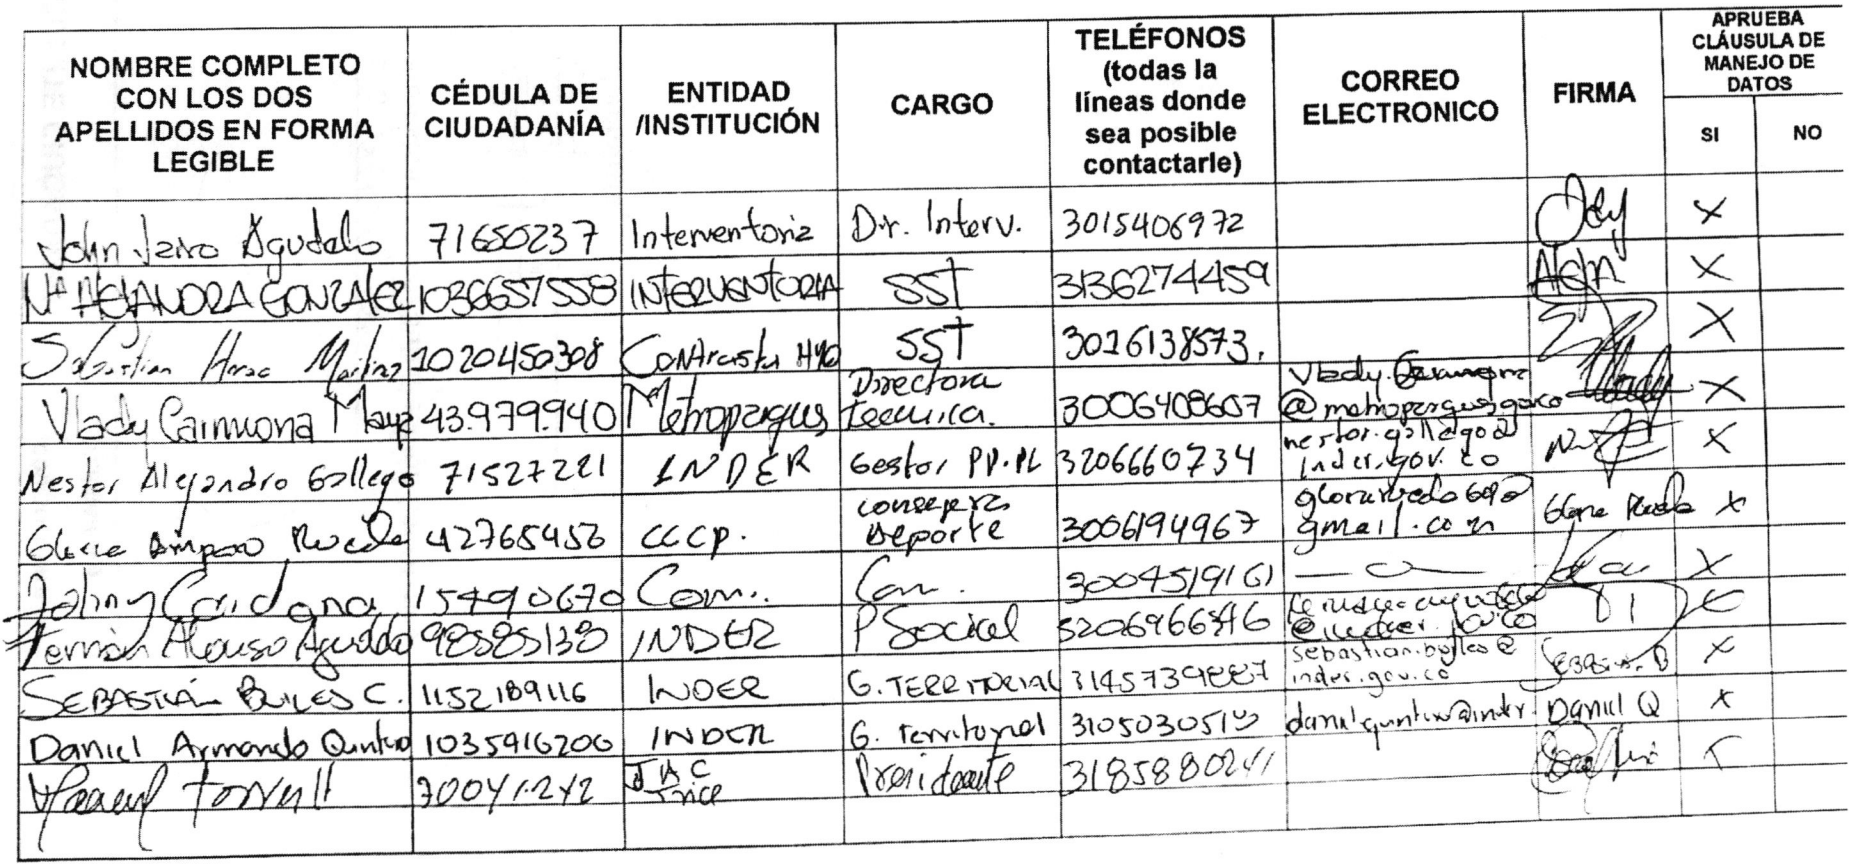 NOMBRE COMPLETO CON LOS DOS APELLIDOS EN FORMA LEGIBLE
CÉDULA DE CIUDADANÍA
ENTIDAD /INSTITUCIÓN
CARGO
TELÉFONOS (todas la líneas donde sea posible contactarle)
CORREO ELECTRONICO
FIRMA
APRUEBA CLÁUSULA DE MANEJO DE DATOS
SI NO
John Jairo Agudelo 71650237 Interventoria Dir. Interv. 3015406972 X
Mª ALEJANDRA GONZALEZ 1036657558 INTERVENTORIA SST 3136274459 Alejn X
Sebastian Martinez 1020450308 Contratista SST 3016138573. X
Vlady Carmona 43.979.940 Metroparques Directora tecnica. 3006408607 vlady.carmona @metroparques.gov.co X
Nestor Alejandro Gallego 71527221 INDER Gestor PP.PL 3206660734 nestor.gallego@ inder.gov.co X
Gloria Amparo Rueda 42765456 CCCP. consejera Deporte 3006194967 gmail.com Gloria Rueda X
Johny Cardona 15490670 Com. Com. 3004519161 X
Fernán Alonso Agudelo 98585138 INDER P Social X
SEBASTIÁN BUILES C. 1152189116 INDER G. TERRITORIAL 3145739887 sebastian.builes@ inder.gov.co Sebastián B X
Daniel Armando Quintero 1035916200 INDER G. territorial Daniel Q X
70041242 JAC Presidente 3185880241